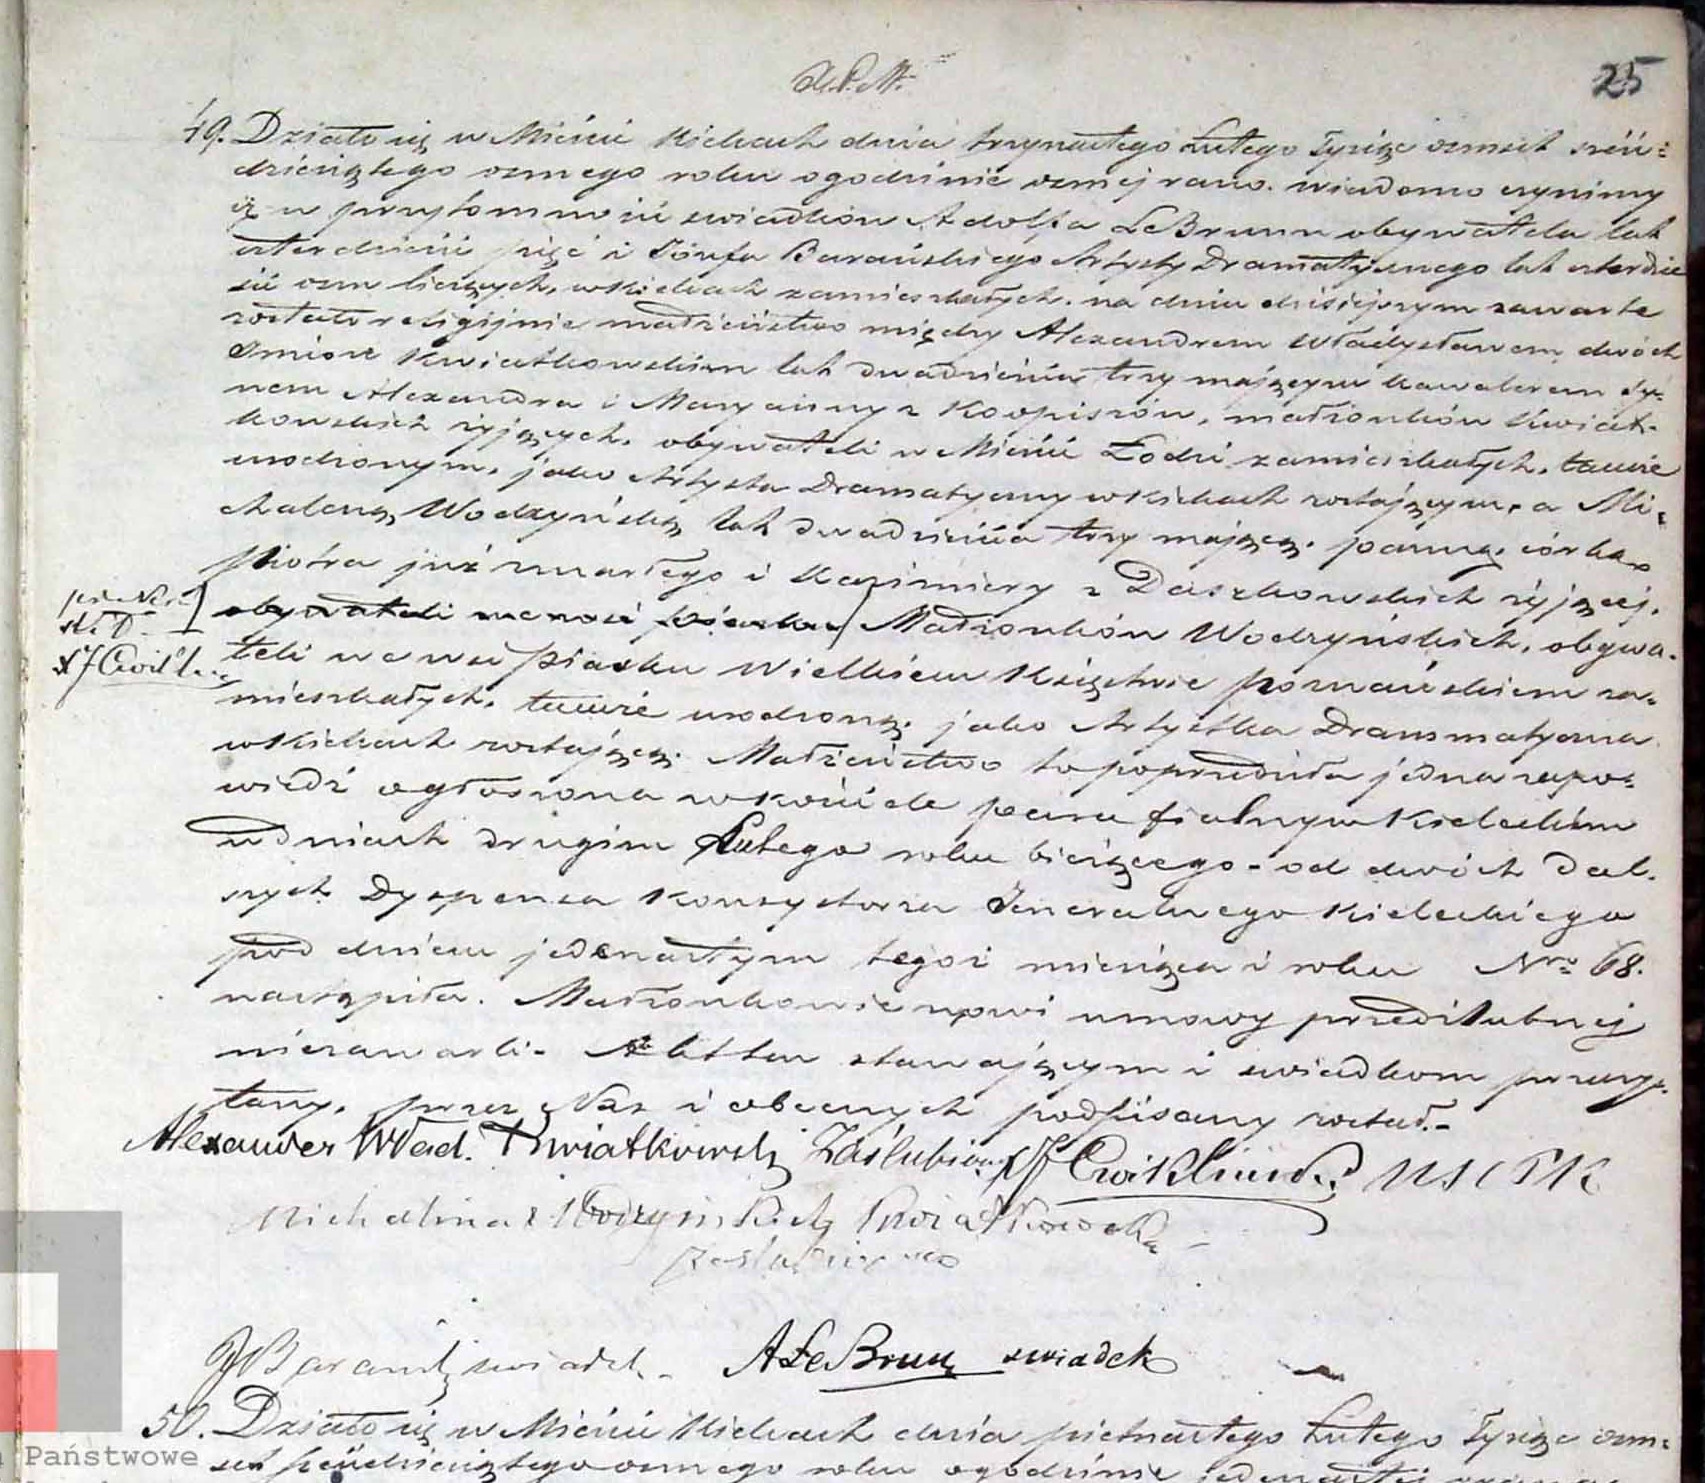 25
49. Działo się w Mieście Kielcach dnia trzynastego Lutego Tysiąc ośmset sześć=
dziesiątego osmego roku o godzinie osmej rano. wiadomo czynimy
iż w przytomności swiadków Adolfa LeBrunn obywatela lat
czterdzieści pięć i Józefa Barańskiego Artysty Dramatycznego lat czterdzie
ści osm liczących, w Kielcach zamieszkałych. na dniu dzisiejszym zawarte
zostało religijnie małżeństwo między Alexandrem Władysławem dwóch
Imion Kwiatkowskim lat dwadzieścia trzy mającym kawalerem sy=
nem Alexandra i Maryanny z Koopiszów, małżonków Kwiat-
kowskich żyjących. obywateli w Mieście Łodzi zamieszkałych. tamże
urodzonym. jako Artysta Dramatyczny w Kielcach zostającym, a Mi=
chaleną Wodzyńską lat dwadzieścia trzy mającą. panną. córką
Piotra już zmarłego i Kazimiery z Daszkowskich żyjącej.
obywateli we wsi Piasku Małżonków Wodzyńskich, obywa-
teli we wsi Piasku Wielkiem Księztwie poznańskiem za-
mieszkałych. tamże urodzoną. jako Artystka Drammatyczna
w Kielcach zostającą. Małżeństwo to poprzedziła jedna zapo=
wiedź ogłoszona w kościele parafialnym Kieleckim
w dniach drugim Lutego roku bieżącego - od dwóch dal-
szych Dyspensa Konsystorza Jeneralnego Kieleckiego
pod dniem jedenastym tegoż miesiąca i roku Nro 68.
nastąpiła. Małżonkowie nowi umowy przedślubnej
niezawarli. Akt ten stawającym i swiadkom przeczy-
tany, przez Nas i obecnych podpisany został.-
Alexander Wład. Kwiatkowski Zaślubiony XJ Cwikliński USCPK
Michalina z Wodzyńskich Kwiatkowska
Zaslubiona
J Barański swiadek. A LeBrun swiadek
50. Działo się w Mieście Kielcach dnia piętnastego Lutego Tysiąc osm=
set sześćdziesiątego osmego roku o godzinie jedenastej
Państwowe